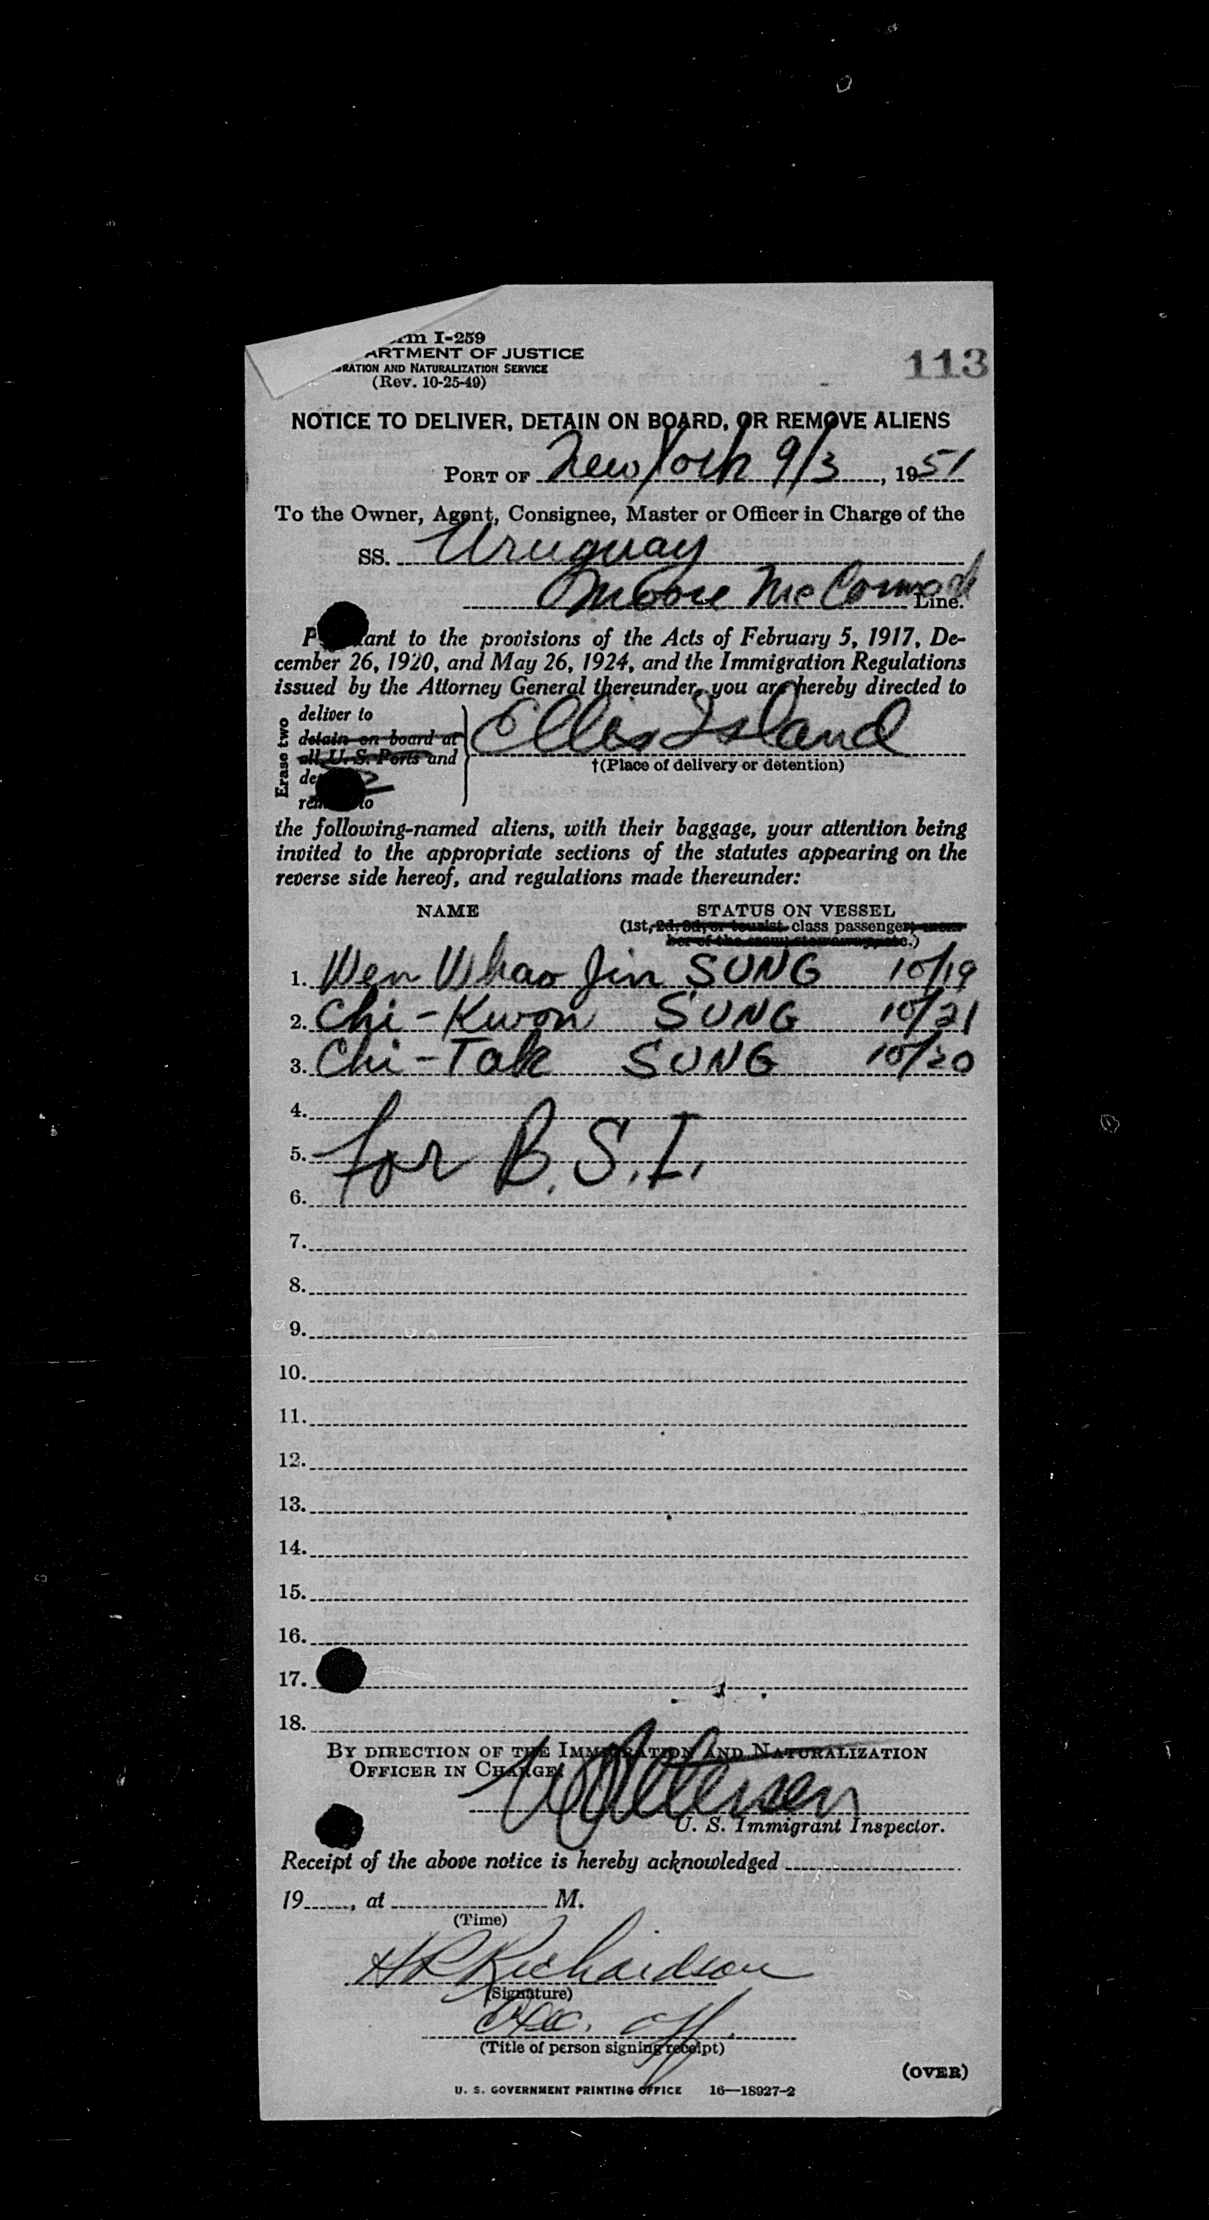 rm I-259
ARTMENT OF JUSTICE
RATION AND NATURALIZATION SERVICE
(Rev. 10-25-49)
113
NOTICE TO DELIVER, DETAIN ON BOARD, OR REMOVE ALIENS
PORT OF New York 9/3, 1951
To the Owner, Agent, Consignee, Master or Officer in Charge of the
SS. Uruguay
Moore McCormack Line.
P ant to the provisions of the Acts of February 5, 1917, De-
cember 26, 1920, and May 26, 1924, and the Immigration Regulations
issued by the Attorney General thereunder, you are hereby directed to
Erase two
deliver to
detain on board at
all U. S. Ports and
de
re to
Ellis Island
†(Place of delivery or detention)
the following-named aliens, with their baggage, your attention being
invited to the appropriate sections of the statutes appearing on the
reverse side hereof, and regulations made thereunder:
NAME STATUS ON VESSEL
(1st, 2d, 3d, or tourist class passenger,
.)
1. Wen Whao Jin SUNG 10/19
2. Chi-Kwon SUNG 10/21
3. Chi-Tak SUNG 10/20
4.
5. for B.S.I.
6.
7.
8.
9.
10.
11.
12.
13.
14.
15.
16.
17.
18.
BY DIRECTION OF THE IMMIGRATION AND NATURALIZATION
OFFICER IN CHARGE:
U. S. Immigrant Inspector.
Receipt of the above notice is hereby acknowledged
19, at M.
(Time)
HR Richardson
(Signature)
Exec. off.
(Title of person signing receipt)
(OVER)
U. S. GOVERNMENT PRINTING OFFICE 16—18927-2